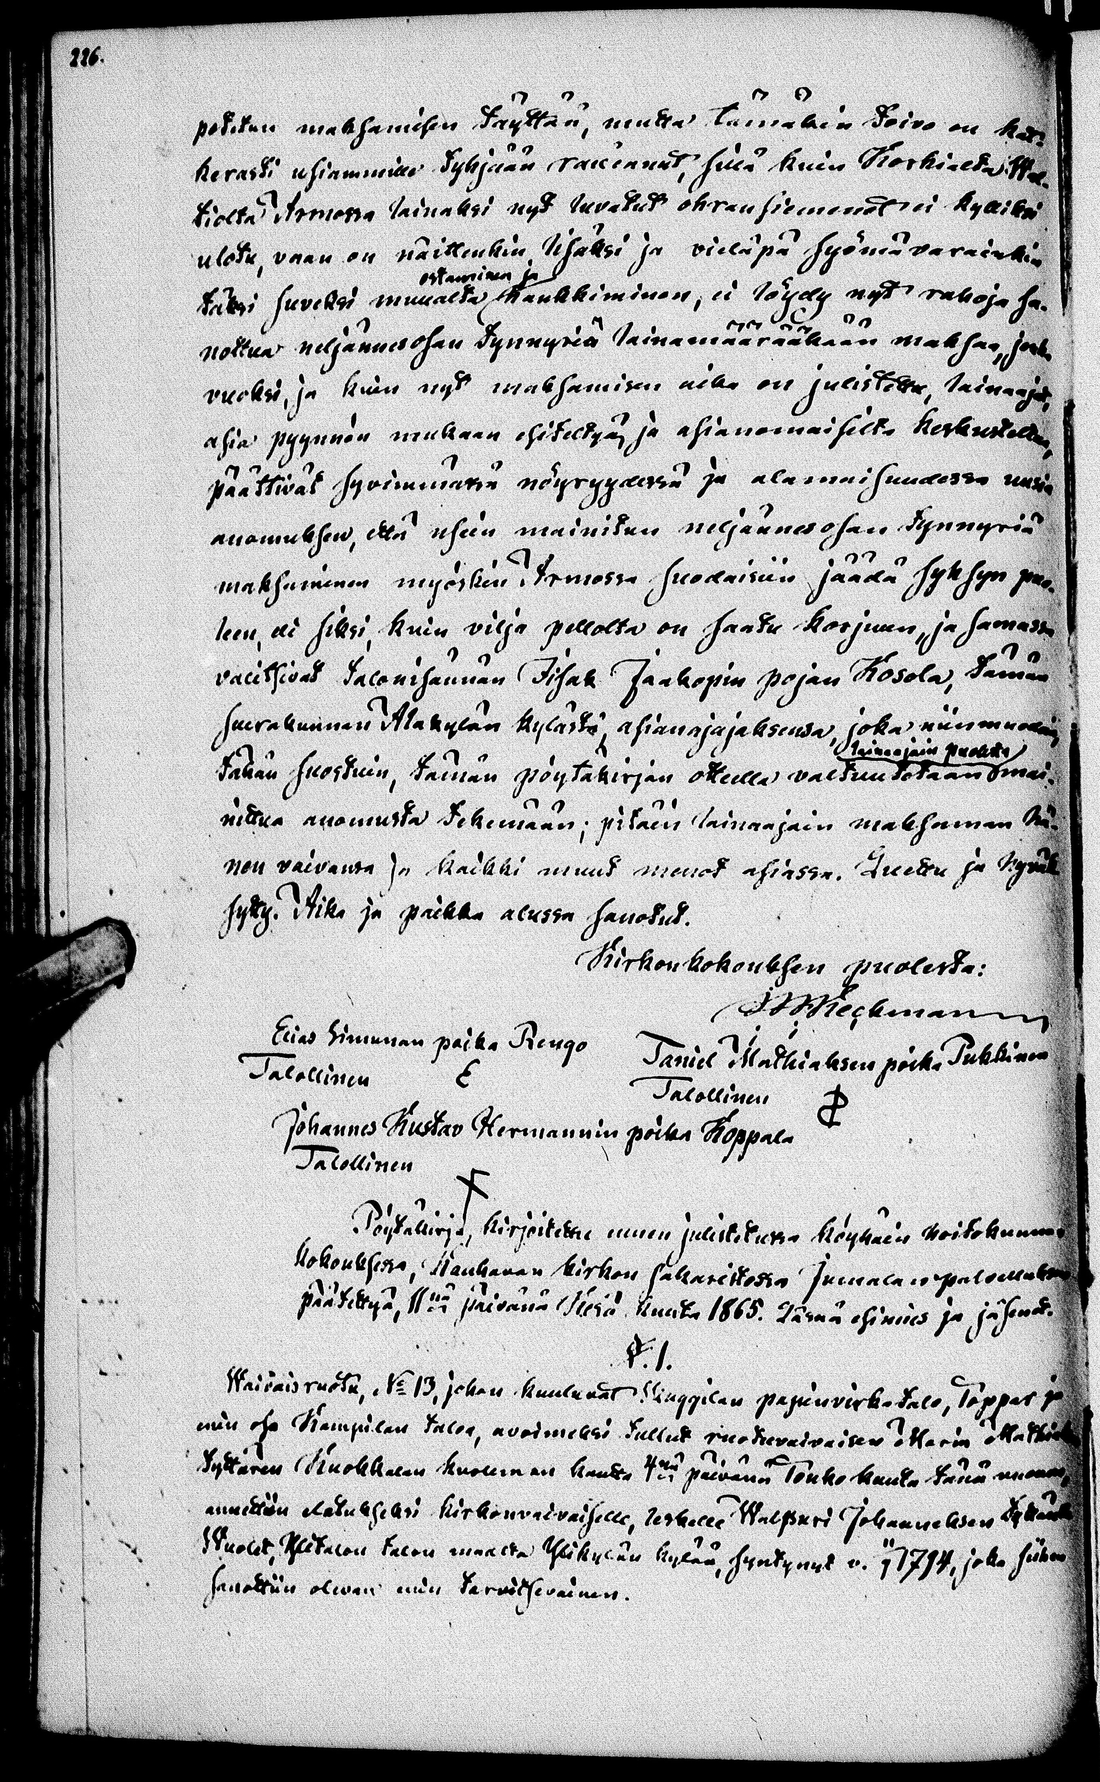 226.
maksamisen täyttää, mutta tämäkin toivo on kat-
kerasti usiammille tyhjään rauennut, sillä kuin Korkialta Wal-
tiolta Armossa lainaksi nyt luvatut ohransiemenet ei kylliksi
ulotu, vaan on näittenkin lisäksi ja vieläpä syömävarainkin
ostaminen ja
täksi suveksi muualta hankkiminen, ei löydy nyt rahoja sa-
nottua neljännesosan tynnyriä lainamäärääkään maksaa, jonka
vuoksi, ja kuin nyt maksamisen aika on julistettu, lainaajat,
asia pyynnön mukaan esiteltyä, ja asianomaisilta keskusteltua,
päättivät syvimmässä nöyryydessä ja alamaisuudessa uusia
anomuksen, että usein mainitun neljännesosan tynnyriä
maksaminen myöskin Armossa suodaisiin jäädä syksyn puo-
leen, eli siksi, kuin vilja pellolta on saatu korjuun, ja samassa
valitsivat talonisännän Iisak Jaakopin pojan Kosola, tämän
seurakunnan Alakylän kylästä, asianajajaksensa, joka niinmuodoin
lainaajain puolesta
tähän suostuin, tämän pöytäkirjan otteella valtuutetaan mai-
nittua anomusta tekemään; pitäin lainaajain maksaman hä-
nen vaivansa ja kaikki muut menot asiassa. Luettu ja hyväk-
sytty. Aika ja paikka alussa sanotut.
Kirkonkokouksen puolesta:
Elias Simunan poika Rengo
Taniel Mathiaksen poika Pukkinen
Talollinen
Talollinen
Johannes Kustav Hermannin poika Koppala
Talollinen
Pöytäkirja, kirjoitettu ennen julistetussa köyhäin hoitokunnan
kokouksessa, Kauhavan kirkon sakaristossa Jumalanpalveluksen
päätettyä, 11nä päivänä Kesä kuuta 1865. Läsnä esimies ja jäsenet.
§. 1.
Waivaisruotu, № 13, johon kuuluvat papinvirkatalo, Toppar ja
min osa Kampilan taloa, avoimeksi tullut ruotuvaivaisen Maria Mathiak
tyttären Kuokkalan kuoleman kautta 4nä päivänä Touko kuuta tänä vuonna,
annettiin elatukseksi kirkonvaivaiselle, leskelle Walpuri Johanneksen tyttärelle
Ylitalon talon maalta Ylikylän kylää, syntynyt v. 1794, joka siihen
sanottiin olevan niin tarvitsevainen.